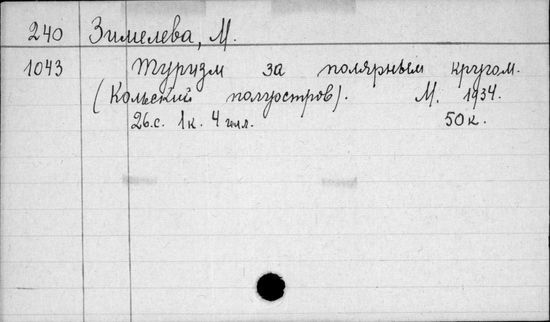 240 Зимелева, М.
1043 Туризм за полярным кругом.
(Кольский полуостров). М. 1934.
26.с. 1к. 4 илл. 50к.